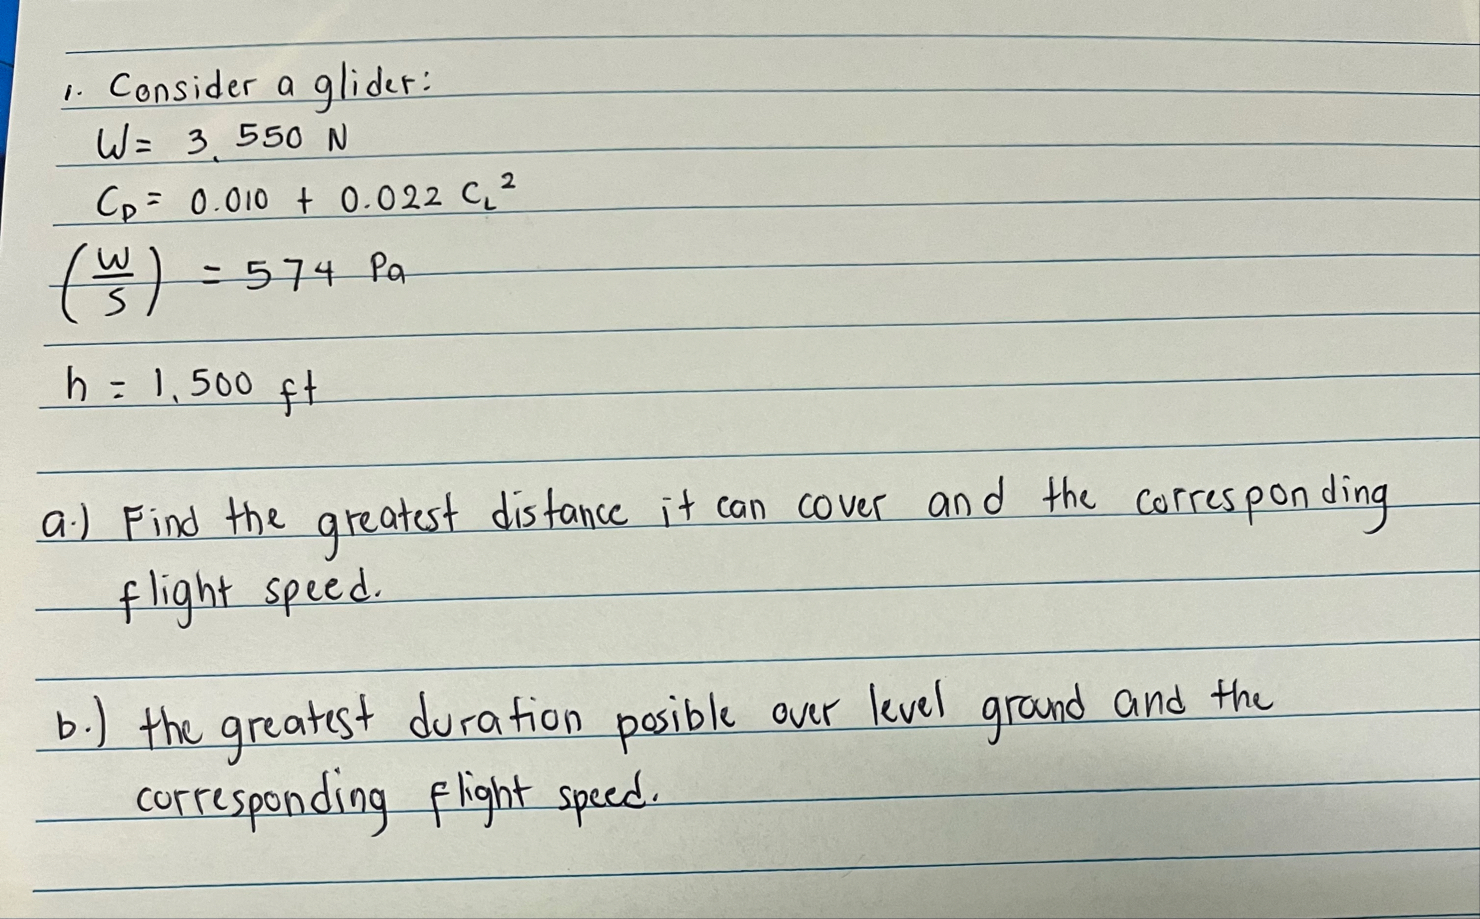 1. Consider a glider:
W = 3,550 N
C_D = 0.010 + 0.022 C_L²
(W/S) = 574 Pa
h = 1,500 ft
a.) Find the greatest distance it can cover and the corresponding
flight speed.
b.) the greatest duration posible over level ground and the
corresponding flight speed.